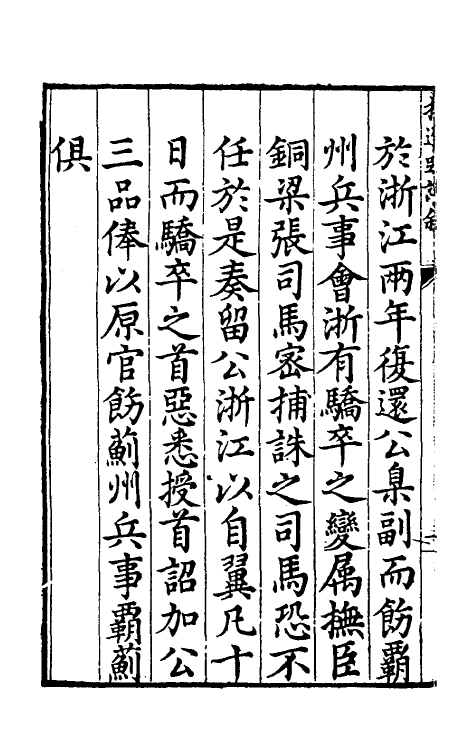 於浙江兩年復還公臬副而飭霸
州兵事會浙有驕卒之變属撫臣
銅梁張司馬密捕誅之司馬恐不
任於是奏留公浙江以自翼凡十
日而驕卒之首惡悉授首詔加公
三品俸以原官飭薊州兵事霸薊
俱